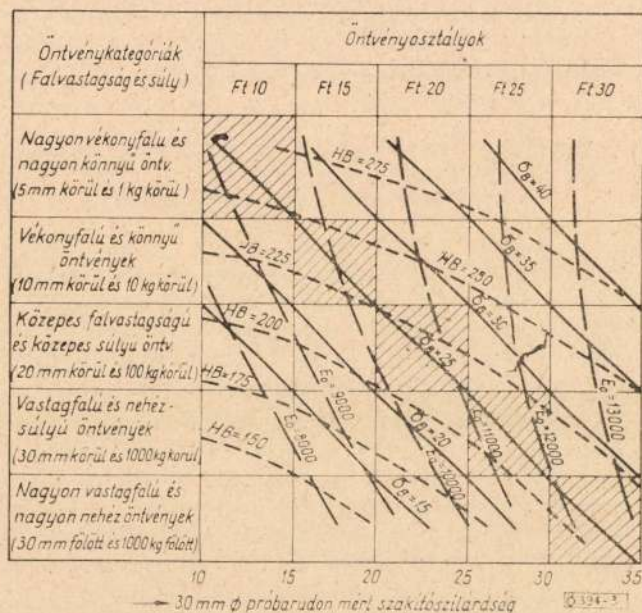 Öntvénykategóriák
(Falvastagság és súly)
Öntvényosztályok
Ft 10
Ft 15
Ft 20
Ft 25
Ft 30
Nagyon vékonyfalu és
nagyon könnyű öntv.
(5 mm körül és 1 kg körül)
Vékonyfalú és könnyű
öntvények
(10 mm körül és 10 kg körül)
Közepes falvastagságú
és közepes súlyu öntv.
(20 mm körül és 100 kg körül)
Vastagfalú és nehéz-
súlyú öntvények
(30 mm körül és 1000 kg körül)
Nagyon vastagfalu és
nagyon nehéz öntvények
(30 mm fölött és 1000 kg fölött)
HB=275
σB=40
HB=225
HB=250
σB=35
σB=30
HB=200
σB=25
HB=175
E0=9000
E0=13000
HB=150
E0=8000
σB=20
E0=10000
E0=11000
E0=12000
σB=15
10
15
20
25
30
35
→ 30 mm ϕ próbarudon mért szakítószilárdság